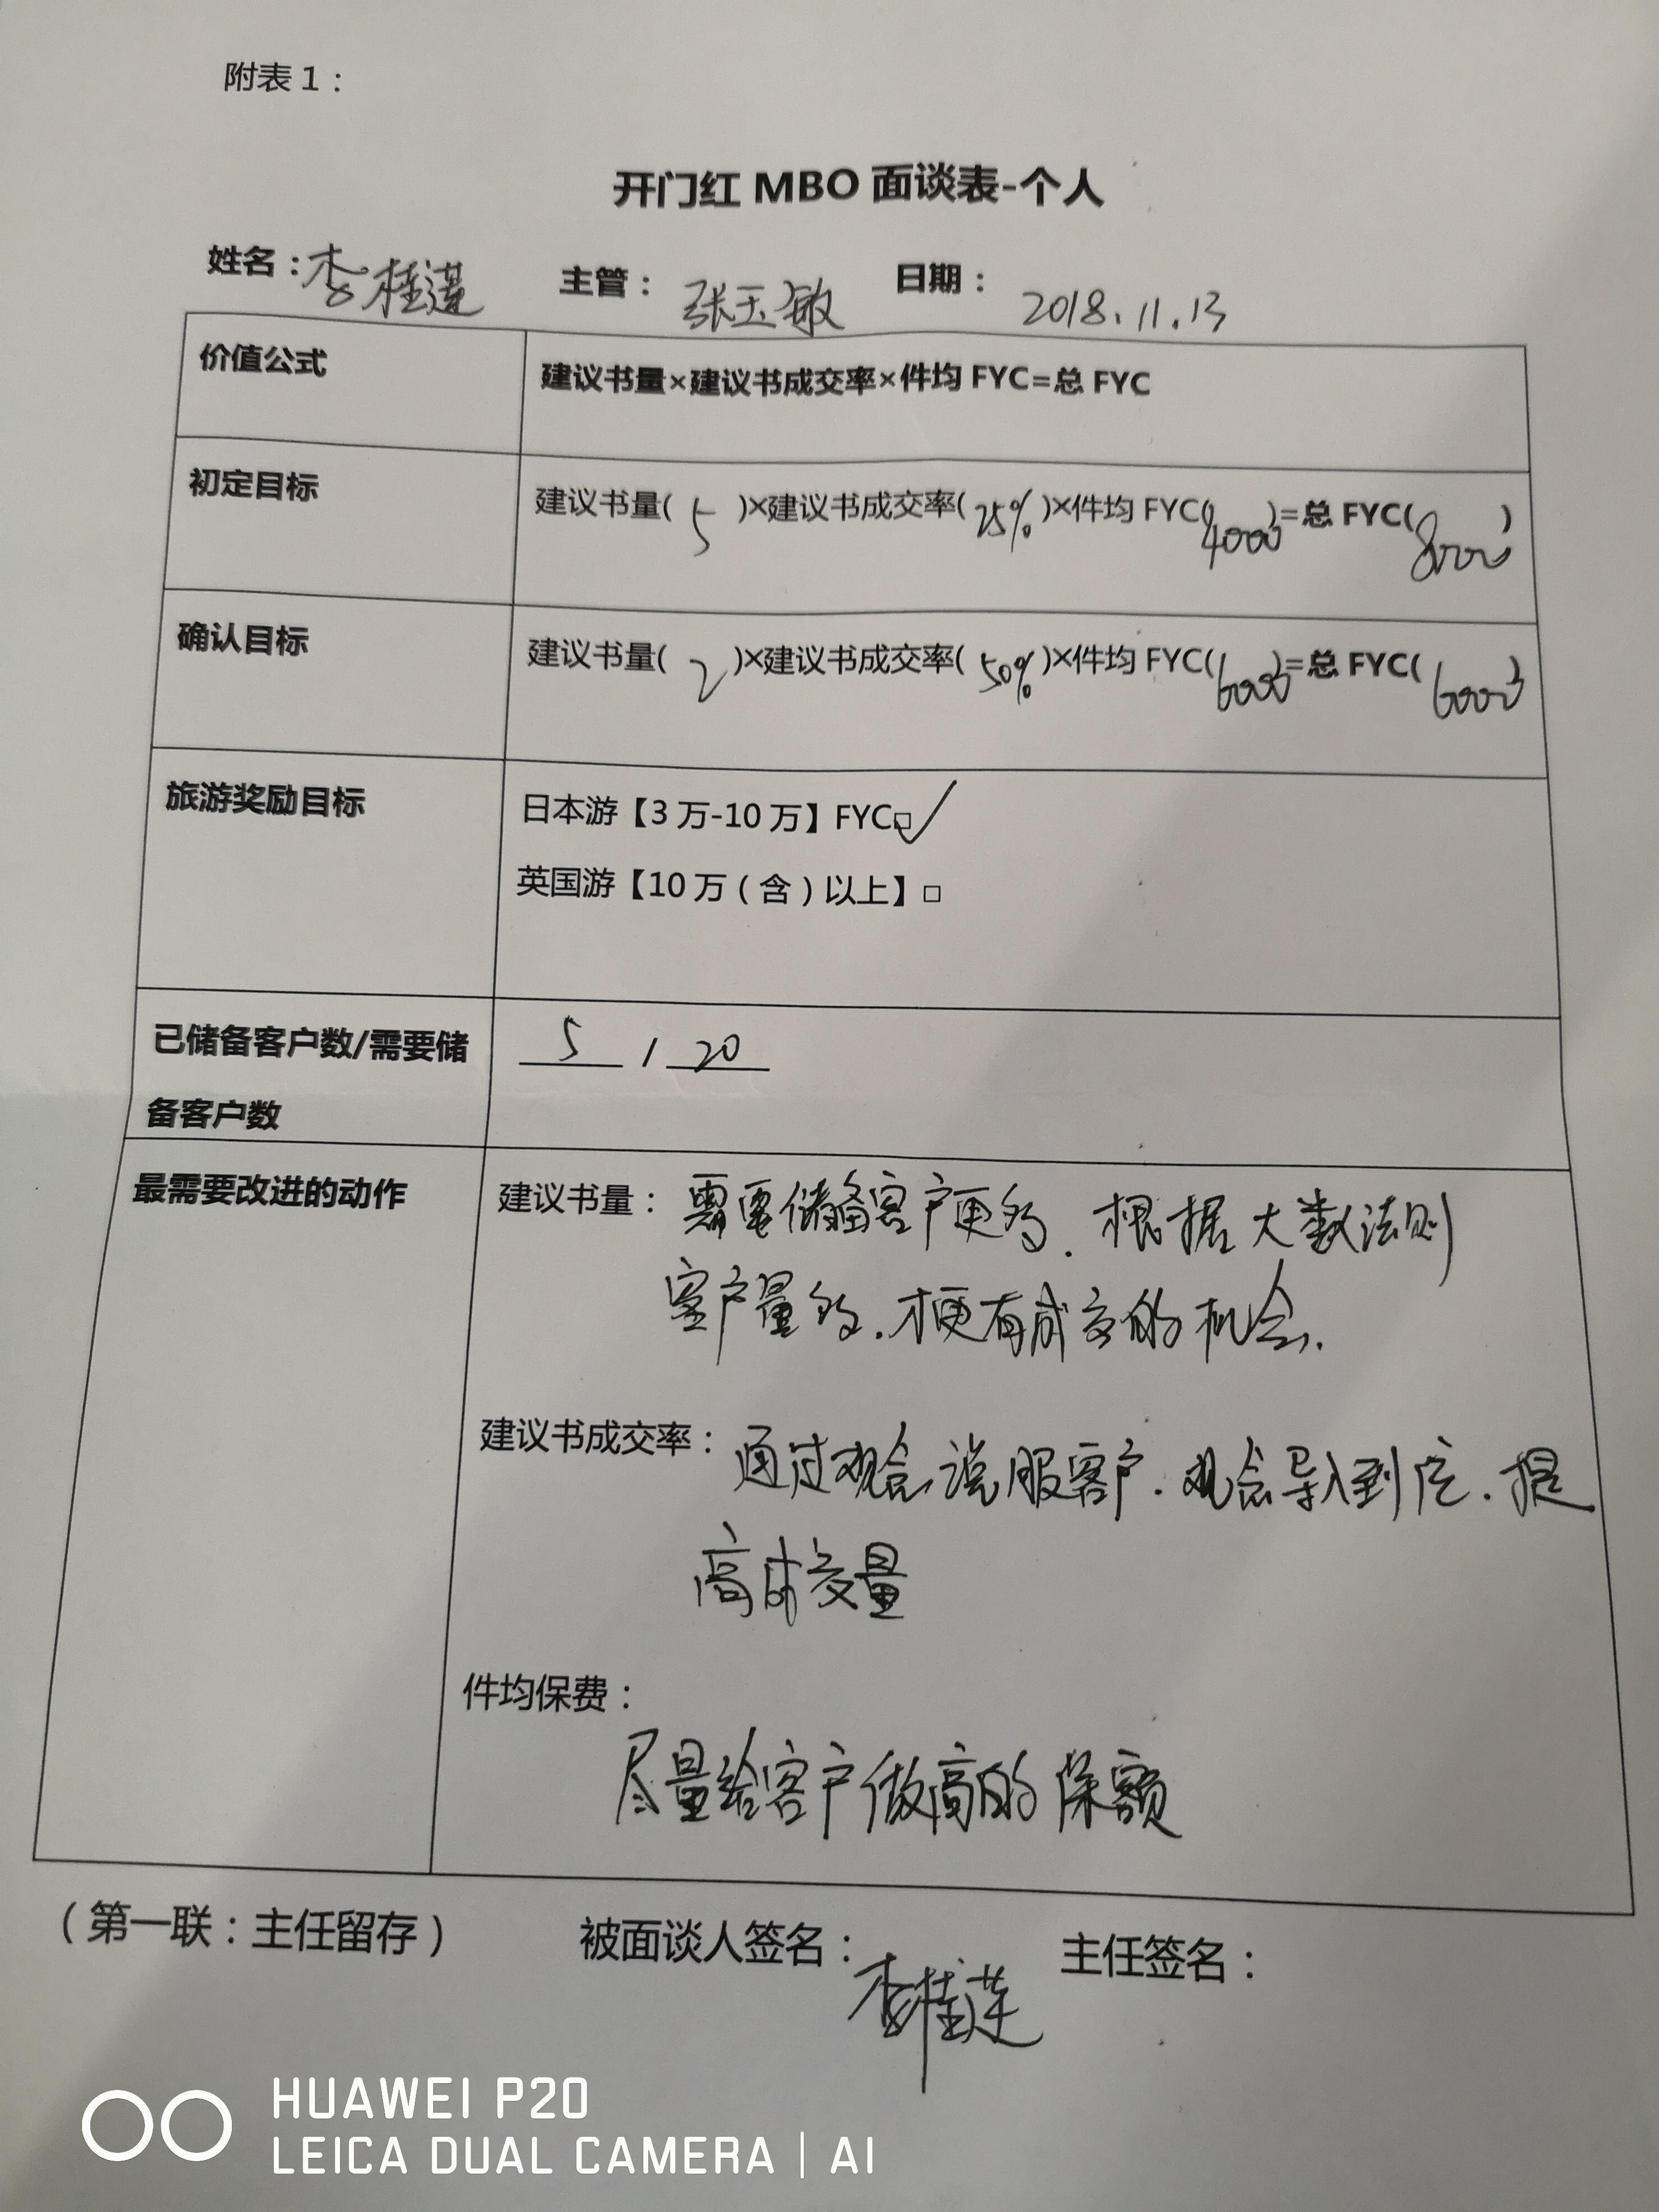 附表1：
开门红 MBO 面谈表-个人
姓名：李桂莲 主管：张玉敏 日期：2018.11.13
价值公式 建议书量×建议书成交率×件均 FYC=总 FYC
初定目标 建议书量( 5 )×建议书成交率( 25% )×件均 FYC( 4000 )=总 FYC( 8000 )
确认目标 建议书量( 2 )×建议书成交率( 50% )×件均 FYC( 6000 )=总 FYC( 6000 )
旅游奖励目标 日本游【3万-10万】FYC□✓
英国游【10万（含）以上】□
已储备客户数/需要储 5 / 20
备客户数
最需要改进的动作 建议书量：需要储备客户更多.根据大数法则
客户量多.才更有成交的机会.
建议书成交率：通过观念说服客户.观念导入到位.提
高成交量
件均保费：
尽量给客户做高的保额
（第一联：主任留存） 被面谈人签名：李桂莲 主任签名：
HUAWEI P20
LEICA DUAL CAMERA | AI